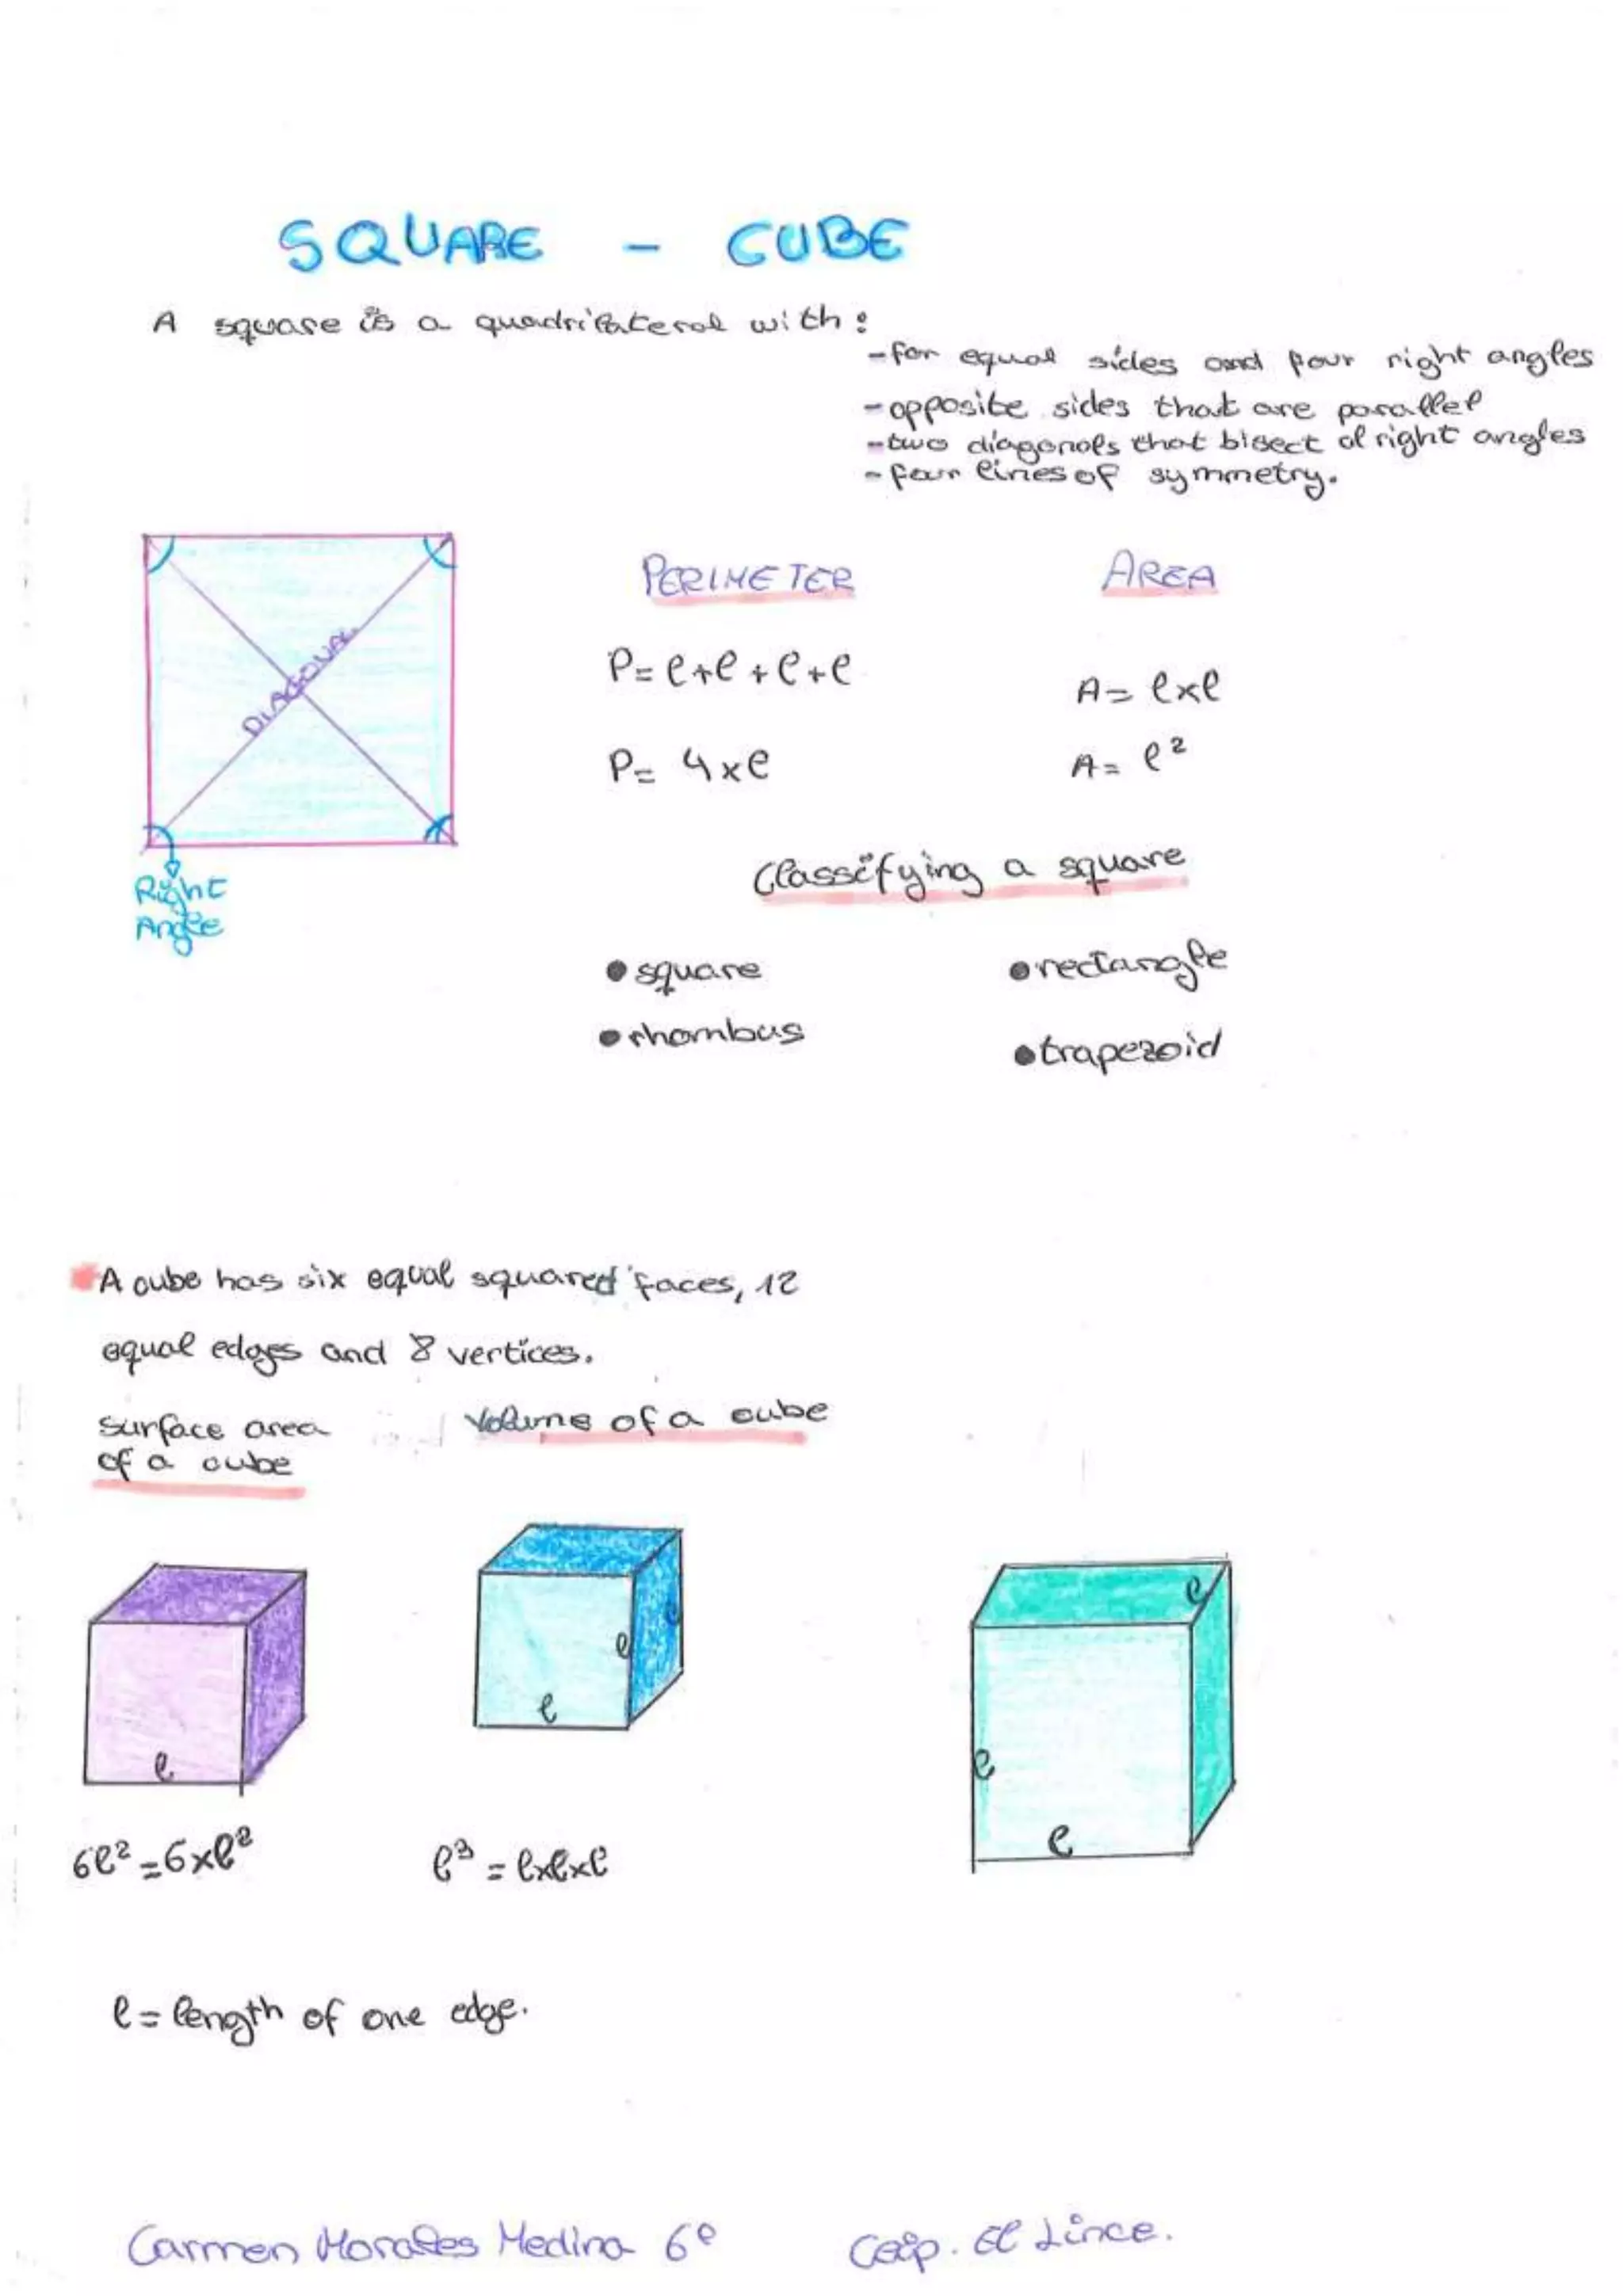 SQUARE - CUBE
A square is a quadrilateral with:
- for equal sides and four right angles
- opposite sides that are parallel
- two diagonals that bisect at right angles
- four lines of symmetry.
PERIMETER
AREA
DIAGONAL
P= l+l+l+l
A= lxl
P= 4xl
A= l²
Right
Angle
Classifying a square
• square
• rectangle
• rhombus
• trapezoid
A cube has six equal squared faces, 12
equal edges and 8 vertices.
surface area
of a cube
Volume of a cube
l
l
l
l
l
l
l
6l²=6xl²
l³ = lxlxl
l = length of one edge.
Carmen Morales Medina 6º
Ceip. El Lince.